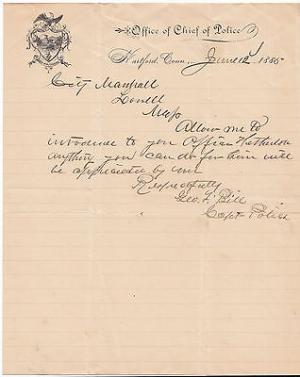 Office of Chief of Police
Hartford, Conn., June 12 1885
City Marshall
Lowell
Mass
Allow me to
introduce to you Officer
anything you can do for him will
be appreciated by me
Respectfully
Geo. F. Bill
Capt Police